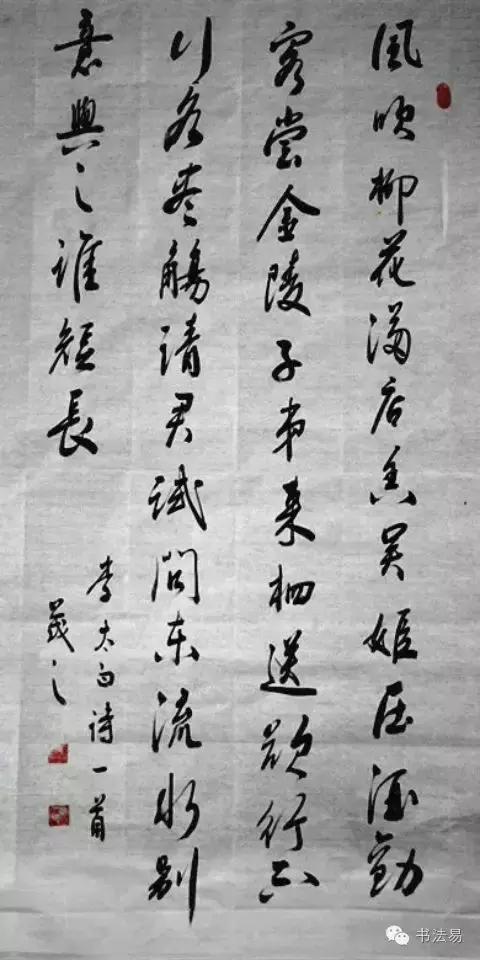 風吹柳花滿店香吳姬压酒勸
客嘗金陵子弟来相送欲行不
行各盡觴請君試問东流水别
意與之誰短長
李太白詩一首
之
书法易